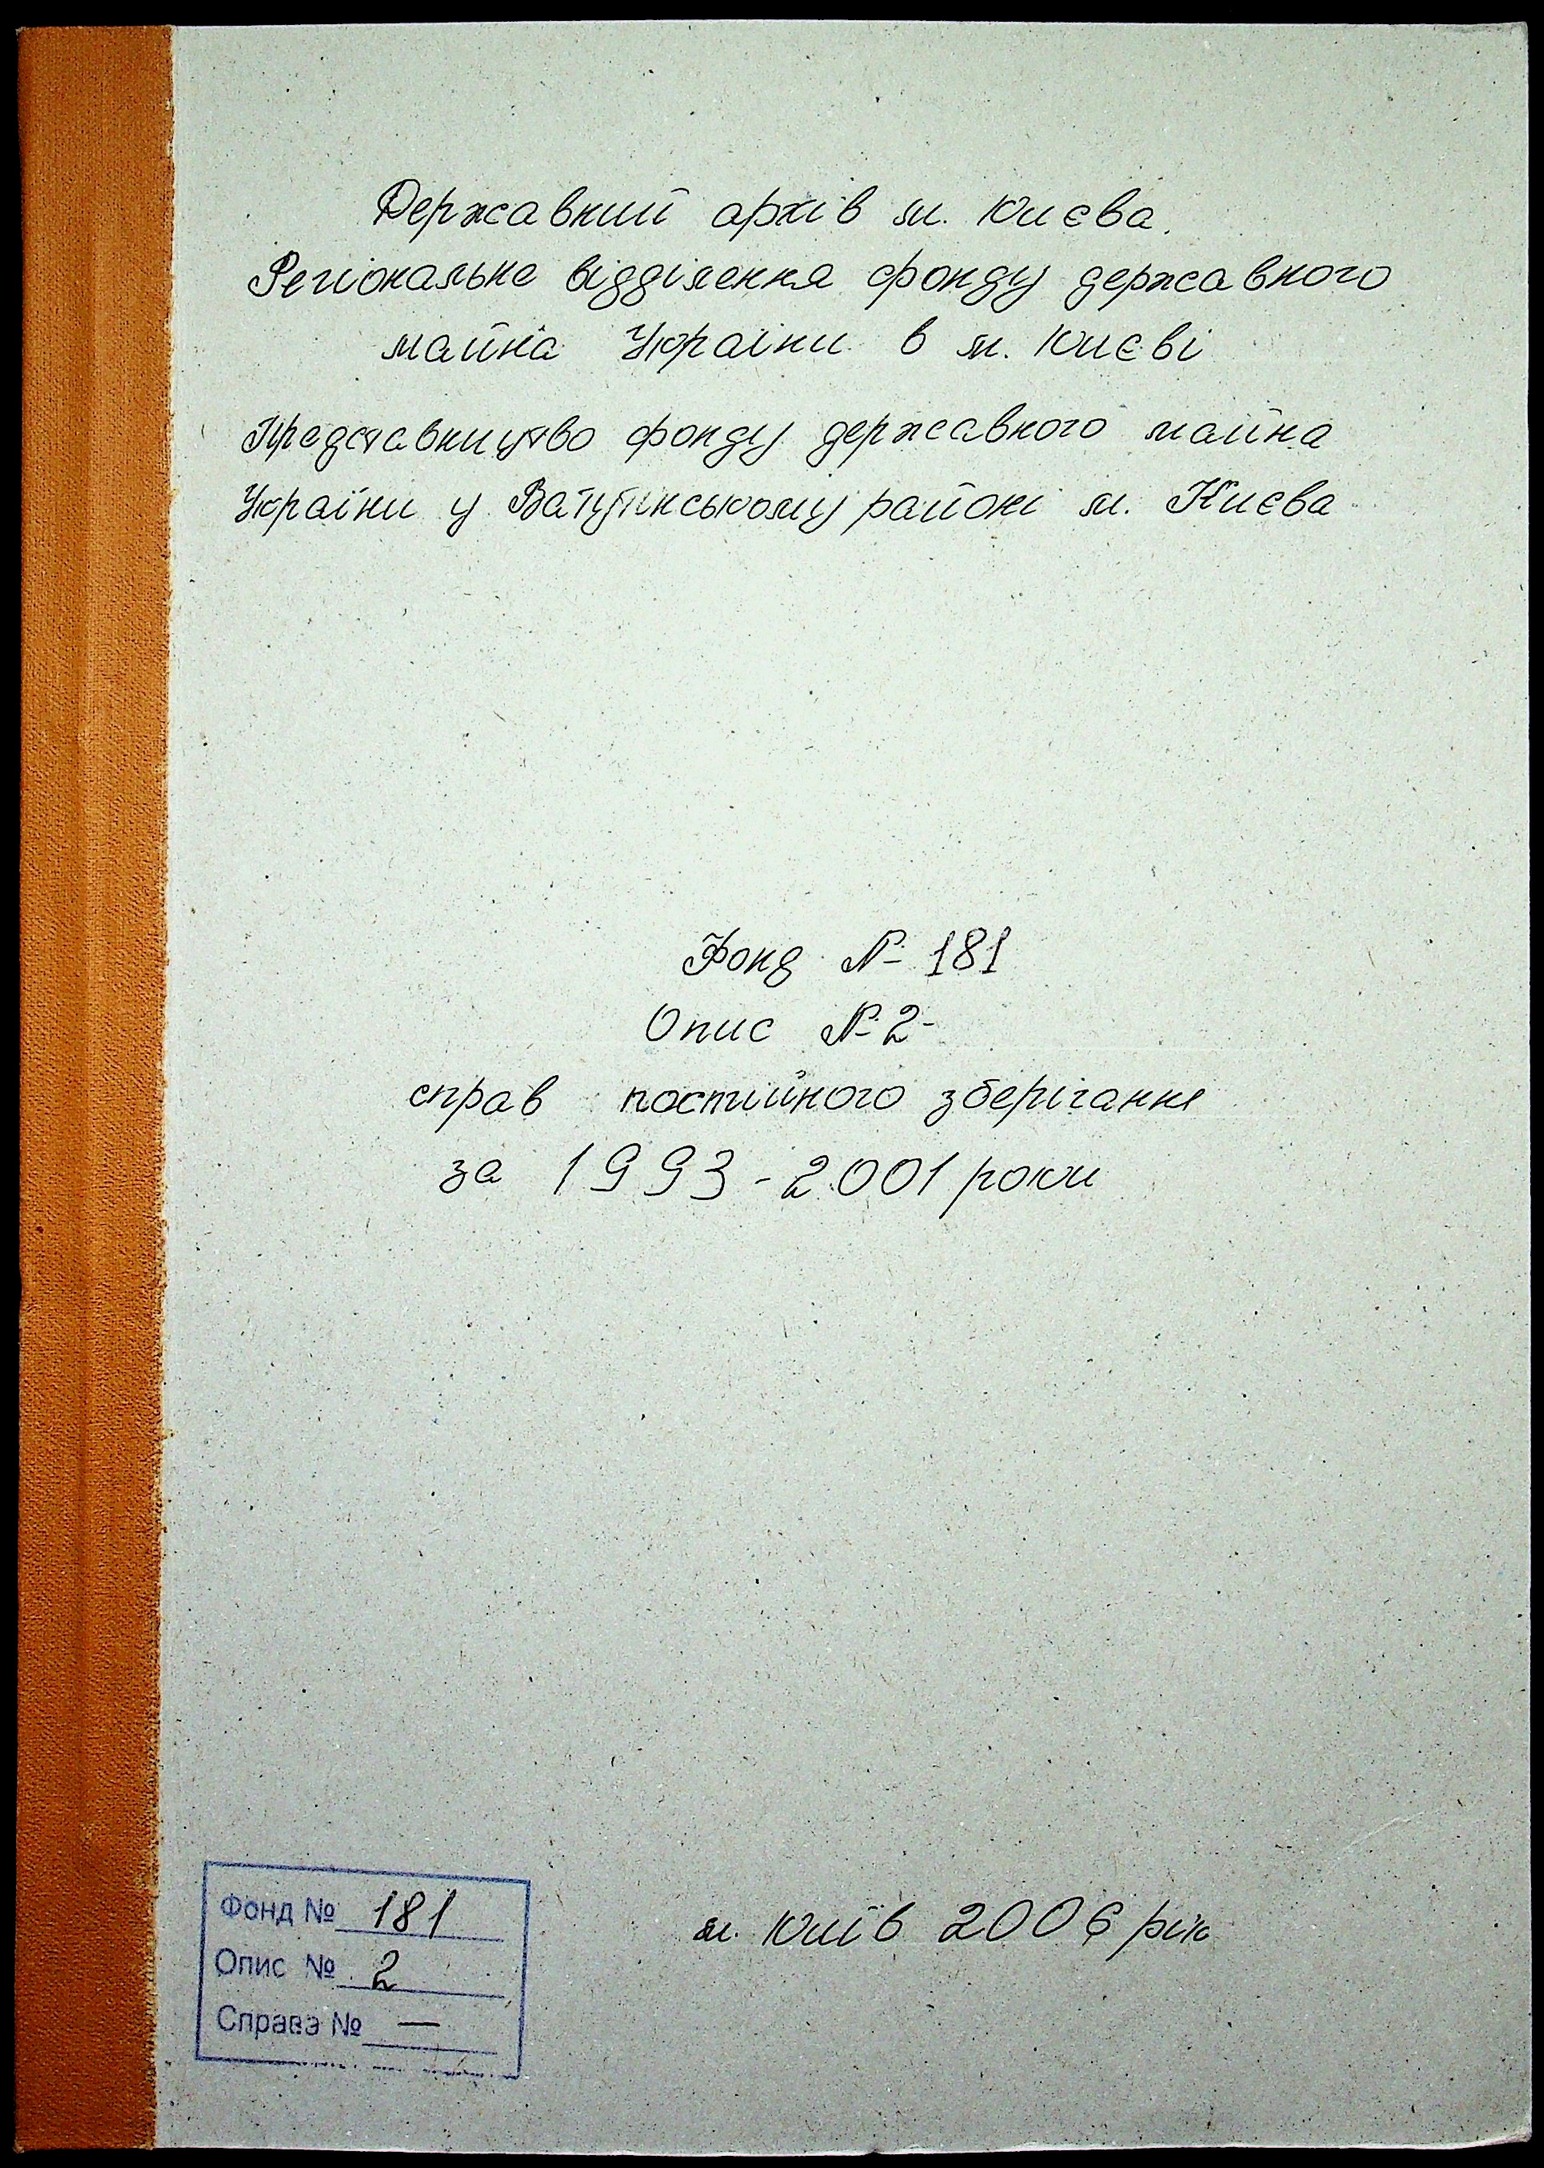 Державний архів м. Києва.
Регіональне відділення фонду державного
майна України в м. Києві
Представництво фонду державного майна
України у Ватутінському районі м. Києва
Фонд № 181
Опис № 2
справ постійного зберігання
за 1993-2001 роки
м. Київ 2006 рік
Фонд № 181
Опис № 2
Справа № —